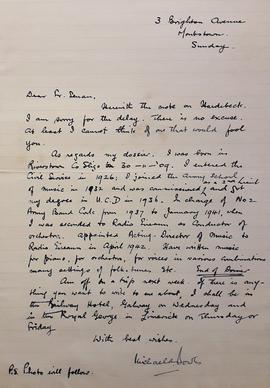 3 Brighton Avenue
Monkstown.
Sunday.
Dear Fr.
Herewith the note on Hardebeck.
I am sorry for the delay. There is no excuse.
At least I cannot think of one that would fool
you.
As regards my dossier. I was born in
Riverstown Co Sligo on 30-11-'09. I entered the
Civil Service in 1926; I joined the Army School
of Music in 1932 and was commissioned and got
my degree in U.C.D in 1936. In charge of No 2
Army Band Cork from 1937 to January 1941, when
I was seconded to Radio Eireann as Conductor of
orchestra. Appointed Acting-Director of Music to
Radio Eireann in April 1942. Have written music
for piano, for orchestra, for voices in various combinations
many settings of folk-tunes Etc.
Am off on a trip next week. If there is any-
thing you want to write to me about, I shall be
in the Railway Hotel, Galway on Wednesday and
in the Royal George in Limerick on Thursday or
Friday
With best wishes.
Michael Bowles
P.S. Photo will follow.